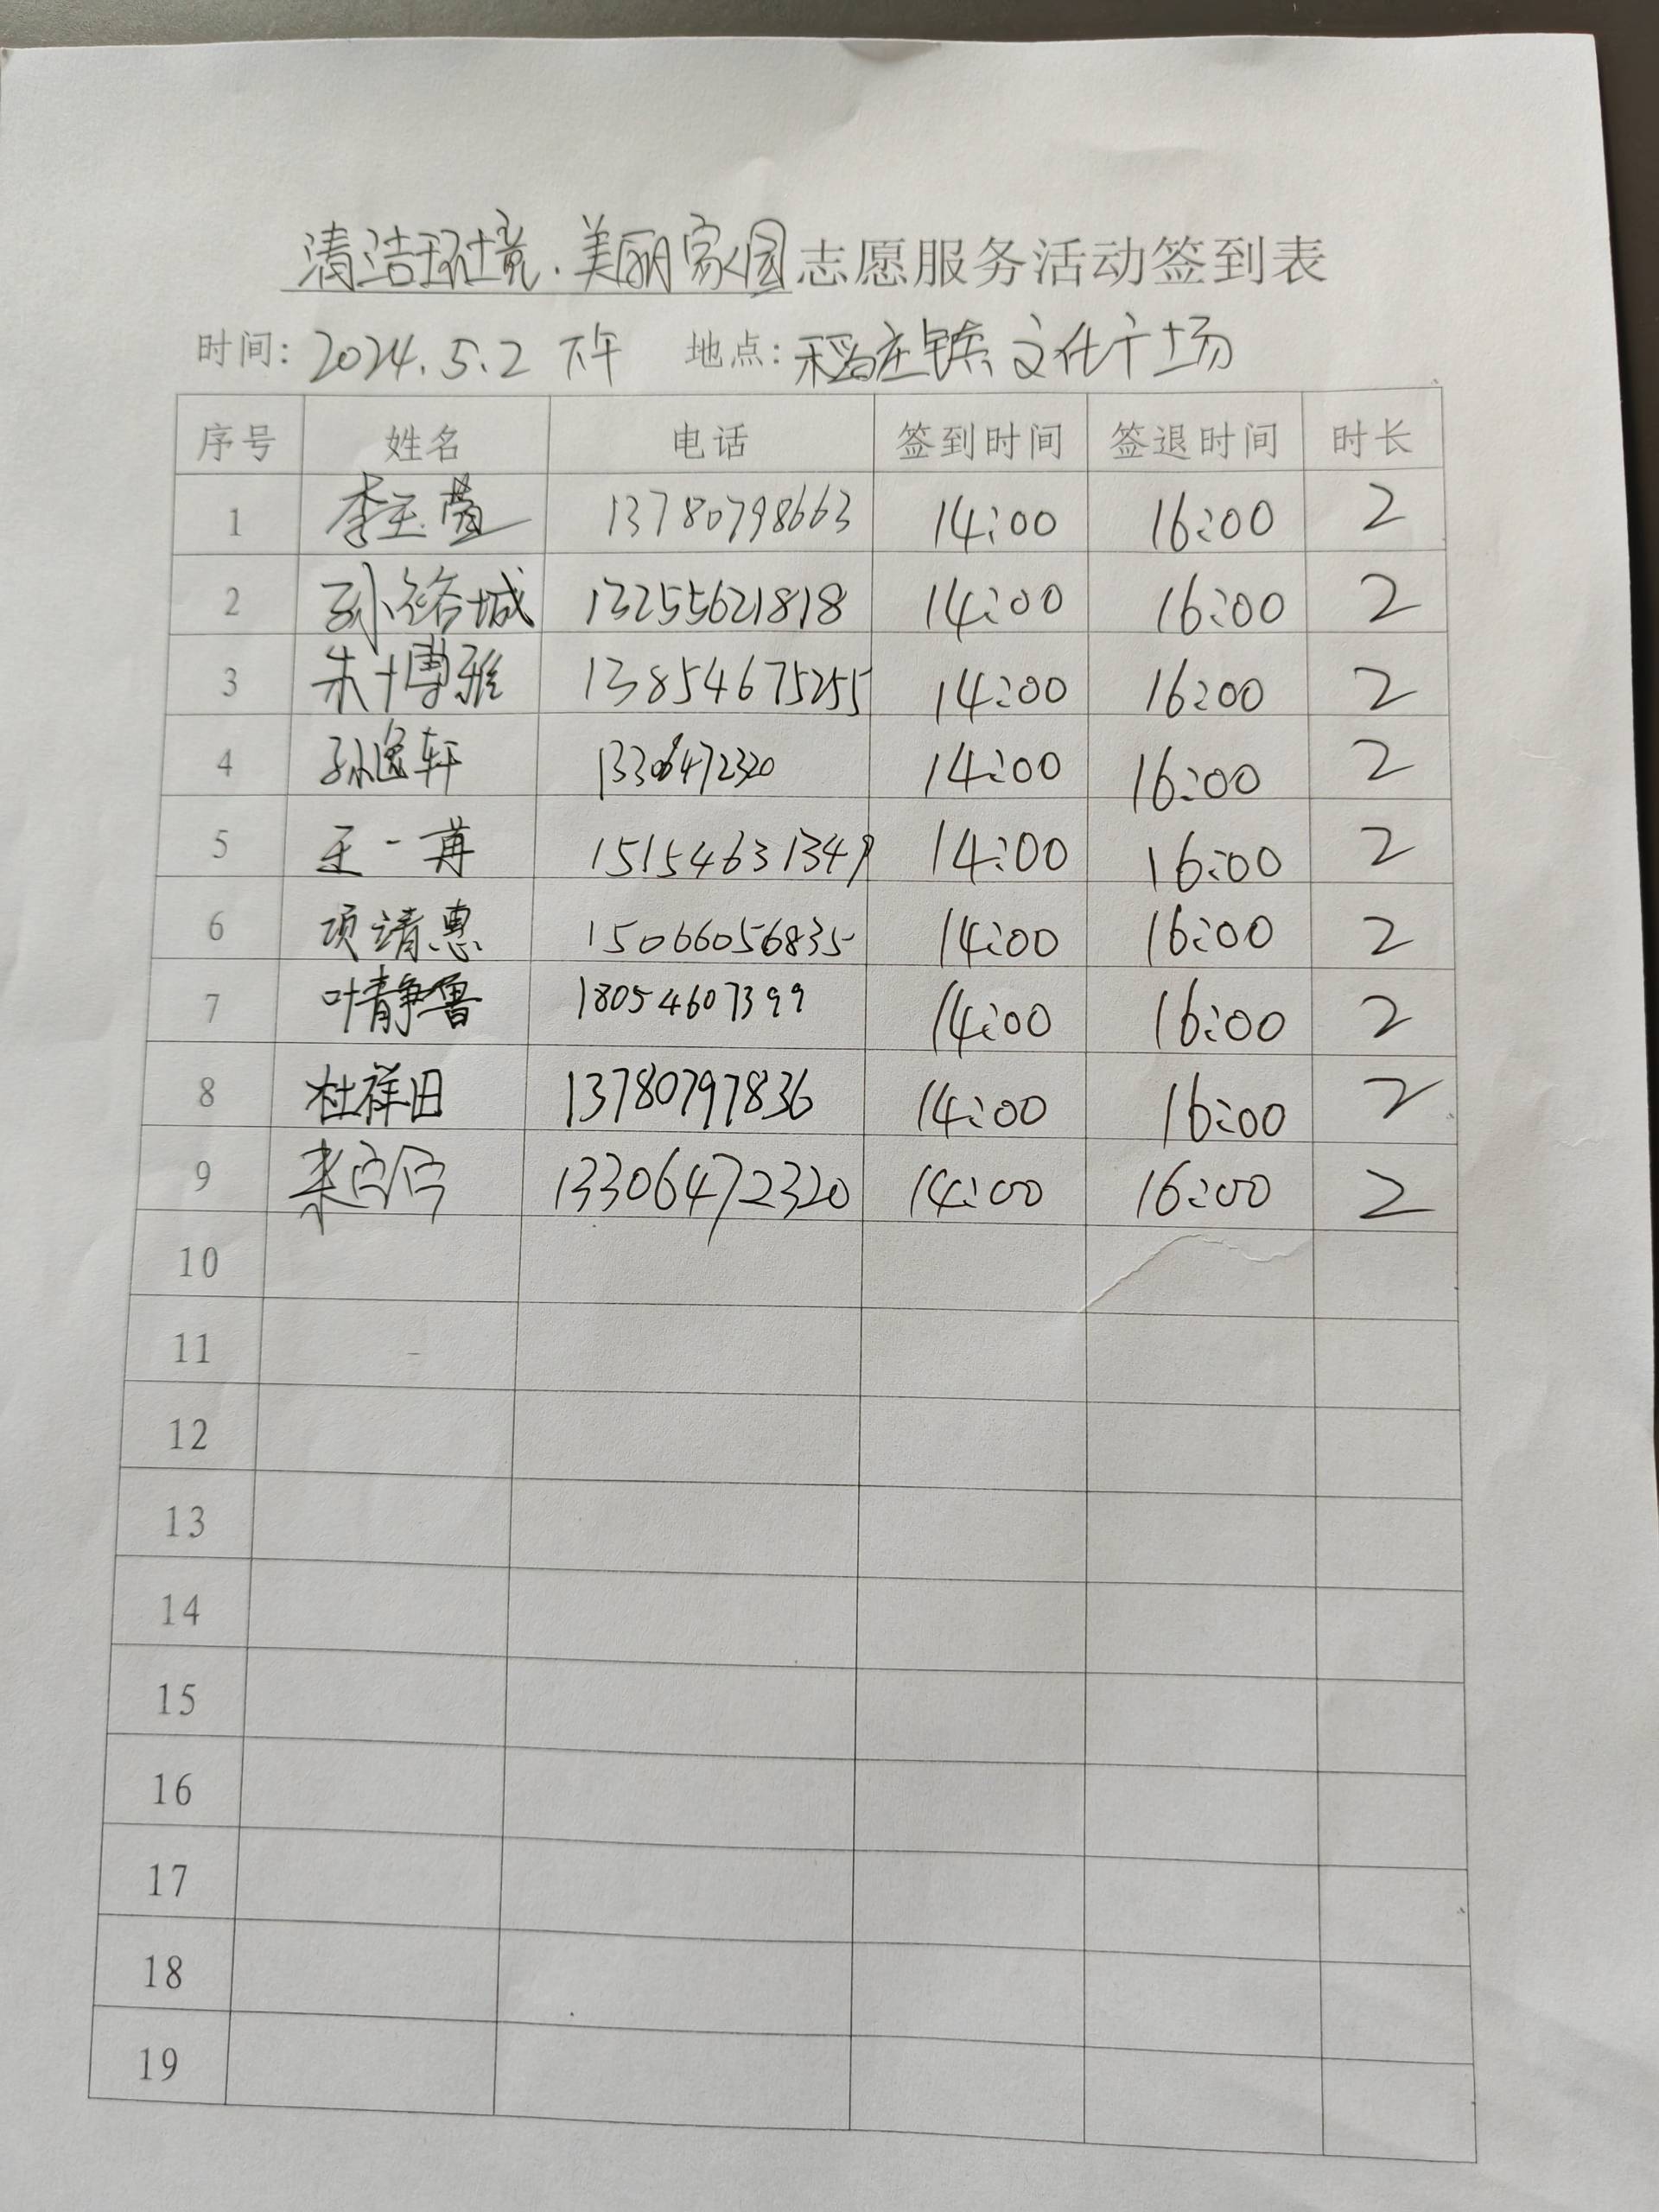 清洁环境.美丽家园志愿服务活动签到表
时间: 2024.5.2 下午 地点: 稻庄镇文化广场
序号 姓名 电话 签到时间 签退时间 时长
1 李玉萱 13780798663 14:00 16:00 2
2 孙裕城 13255621818 14:00 16:00 2
3 朱博雅 13854675255 14:00 16:00 2
4 孙逸轩 13306472320 14:00 16:00 2
5 王一苒 15154631349 14:00 16:00 2
6 项靖惠 15066056835 14:00 16:00 2
7 叶静鲁 18054607399 14:00 16:00 2
8 杜祥田 13780797836 14:00 16:00 2
9 13306472320 14:00 16:00 2
10
11
12
13
14
15
16
17
18
19